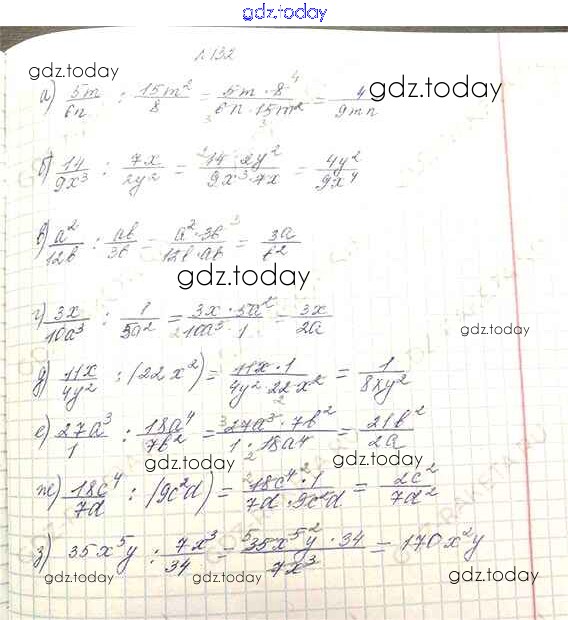 gdz.today
№132
gdz.today
а) 5m/6n : 15m²/8 = 5m · 8/6n · 15m² = 4/9mn
gdz.today
б) 14/9x³ : 7x/2y² = 14 · 2y²/9x³ · 7x = 4y²/9x⁴
в) a²/12b : ab/3b = a² · 3b/12b · ab = 3a/b²
gdz.today
г) 3x/10a³ : 1/5a² = 3x · 5a²/10a³ · 1 = 3x/2a
gdz.today
д) 11x/4y² : (22x²) = 11x · 1/4y² · 22x² = 1/8xy²
е) 27a³/1 : 18a⁴/7b² = 27a³ · 7b²/1 · 18a⁴ = 21b²/2a
gdz.today gdz.today
ж) 18c⁴/7d : (9c²d) = 18c⁴ · 1/7d · 9c²d = 2c²/7d²
з) 35x⁵y : 7x³/34 = 35x⁵y · 34/7x³ = 170x²y
gdz.today gdz.today gdz.today